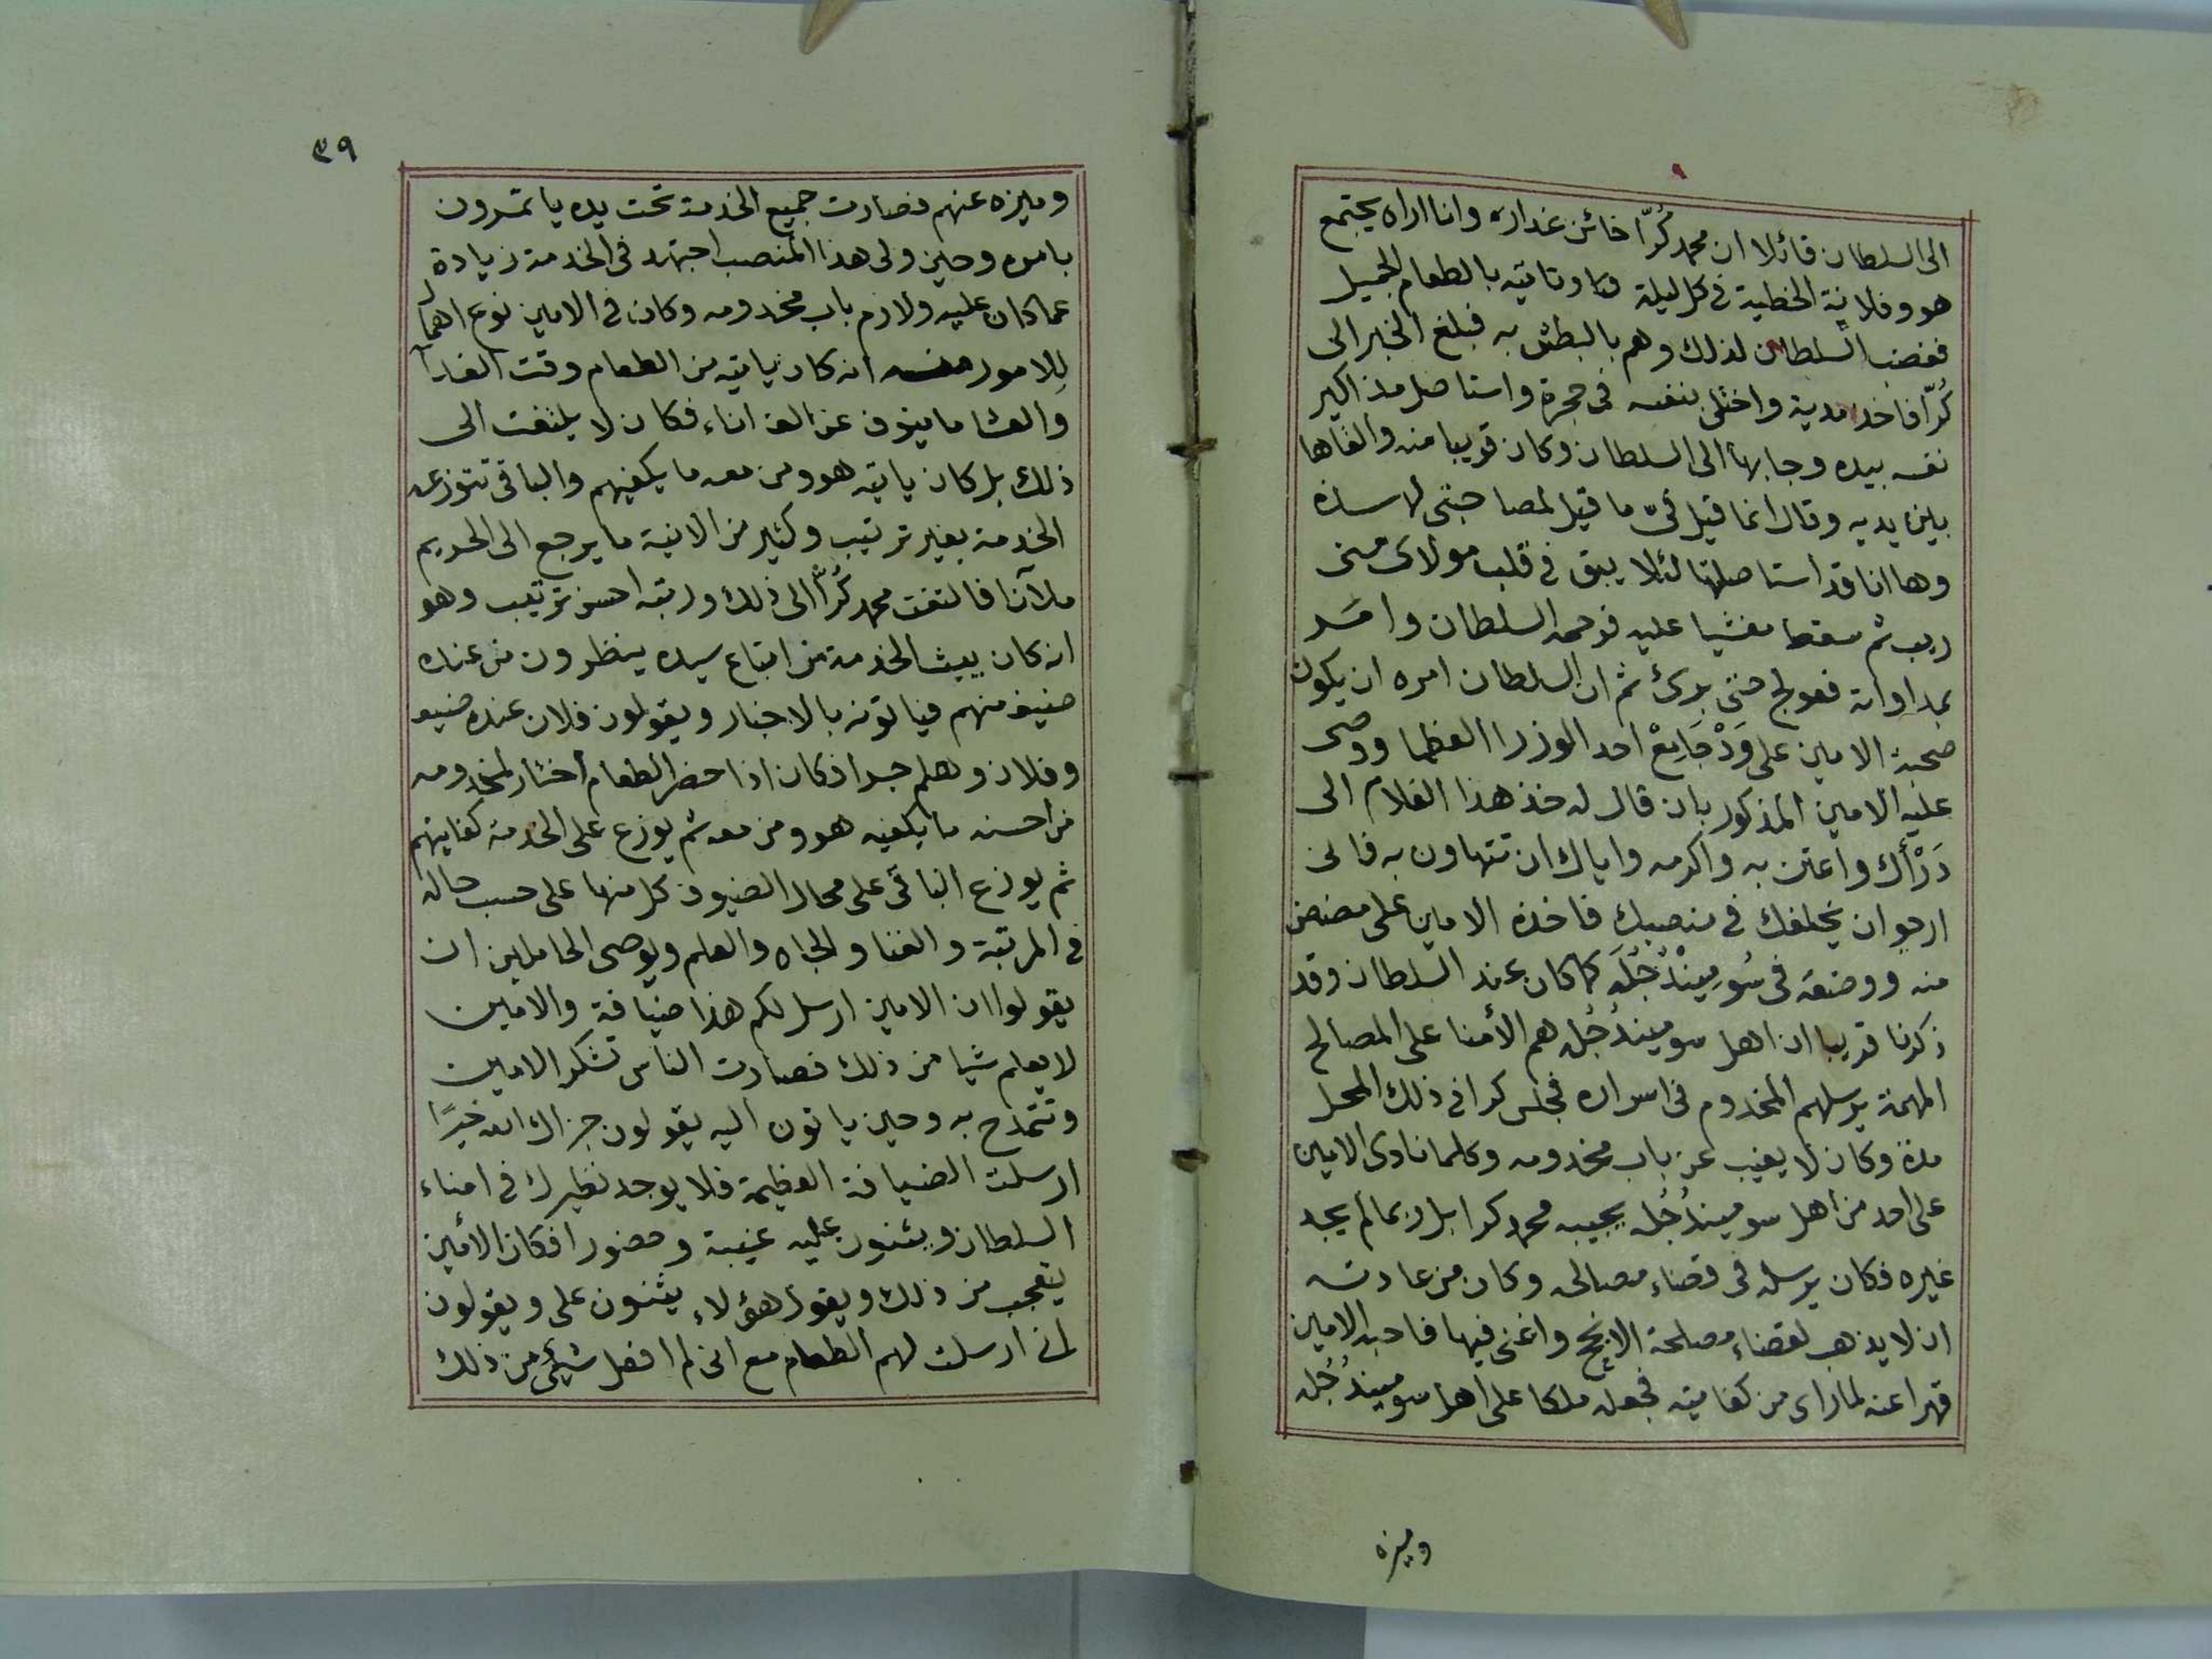 الى السلطان قائلا ان محمد كُرّا خائن غدار وانا اراه يجتمع
هو وفلانة الخطية فى كل ليلة وتاتيه بالطعام الجميل
فغضب السلطان لذلك وهم بالبطش به فبلغ الخبر الى
كُرّا فاخذ مدية واختلى بنفسه فى حجرة واستاصل مذاكير
نفسه بيده وجا بها الى السلطان وكان قريبا منه والقاها
بين يديه وقال انما قيل فىّ ما قيل لمصاحبتى لهاسذه
وها انا قد استاصلتها لئلا يبق فى قلب مولاى منى
ريب ثم سقط مغشيا عليه فرحمه السلطان وامر
بمداواته فعولج حتى برئ ثم ان السلطان امره ان يكون
صحبة الامين على وَدْ جَامِعْ احد الوزرا العظما ووصى
عليه الامين المذكور بان قال له خذ هذا الغلام الى
دَرْأَك واعتن به واكرمه واياك ان تتهاون به فانى
ارجو ان يخلفك فى منصبك فاخذه الامين على مضض
منه ووضعه فى سُومِينْدُجُلَه كما كان عند السلطان وقد
ذكرنا قريبا ان اهل سوميندُجُله هم الأمنا على المصالح
المهمة يرسلهم المخدوم فى اسراره فجلس كرا فى ذلك المحل
مدة وكان لا يغيب عن باب مخدومه وكلما نادى الامين
على احد من اهل سوميندُجُله يجيبه محمد كرا بل ربما لم يجد
غيره فكان يرسله فى قضاء مصالحى وكان من عادته
ان لا يذهب لقضاء مصلحة الا نجح واغنى فيها فاحبه الامين
قهرا عنه لما راى من كفايته فجعله ملكا على اهل سوميندُجُله
وميزه
٣٩
وميزه عنهم فصارت جميع الخدمة تحت يده ياتمرون
بامره وحين ولى هذا المنصب اجتهد فى الخدمة زيادة
عما كان عليه ولازم باب مخدومه وكان فى الامين نوع اهمال
للامور منه انه كان ياتيه من الطعام وقت الغدآ
والعشا ما ينوف عن الف اناء فكان لا يلتفت الى
ذلك بل كان ياتيه هو ومن معه ما يكفيهم والباقى تتوزعه
الخدمة بغير ترتيب وكثير من الانية ما يرجع الى الحريم
ملآنا فالتفت محمد كُرّا الى ذلك ورتبه احسن ترتيب وهو
انه كان يبيث الخدمة من اتباع سيده ينظرون من عنده
ضيف منهم فياتونه بالاخبار ويقولون فلان عنده ضيف
وفلان وهلم جرا فكان اذا حضر الطعام اختار لمخدومه
من احسنه ما يكفيه هو ومن معه ثم يوزع على الخدمة كفايتهم
ثم يوزع الباقى على محال الضيوف كل منها على حسب حاله
فى المرتبة والغنا والجاه والعلم ويوصى الحاملين ان
يقولوا ان الامين ارسل لكم هذا ضيافة والامين
لا يعلم شيا من ذلك فصارت الناس تشكر الامين
وتتمدح به وحين ياتون اليه يقولون جزاك الله خيرًا
ارسلت الضيافة العظيمة فلا يوجد نظيرك فى امناء
السلطان ويثنون عليه غيبة وحضورا فكان الأمين
يتعجب من ذلك ويقول هؤلاء يثنون على ويقولون
انى ارسلت لهم الطعام مع انى لم افعل شيئى من ذلك